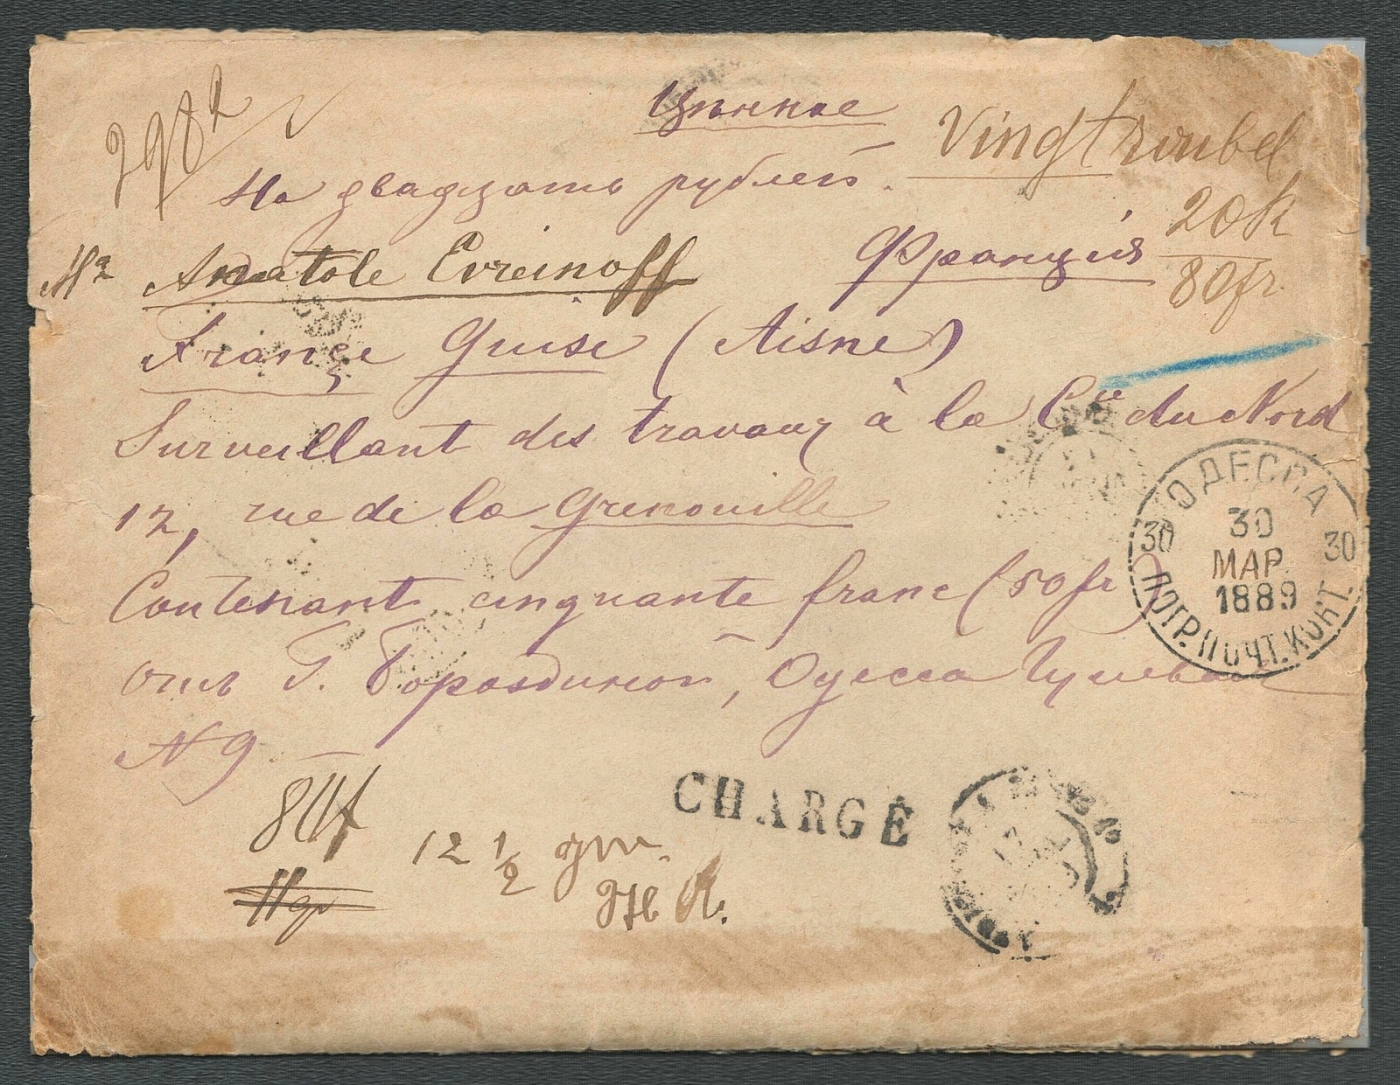 2982
Цѣнное
Vingt roubel
На двадцать рублей.
20k
80fr.
Anatole Evreinoff
Франція
France Guise (Aisne)
Surveillant des travaux à la Cie du Nord
12, rue de la Grenouille
Contenant cinquante franc (50 fr)
отъ Г. Бороздиной, Одесса
N 9
ОДЕССА
30 30
30
МАР.
1889
ПОГР. ПОЧТ. КОНТ.
CHARGÉ
80f
12 1/2